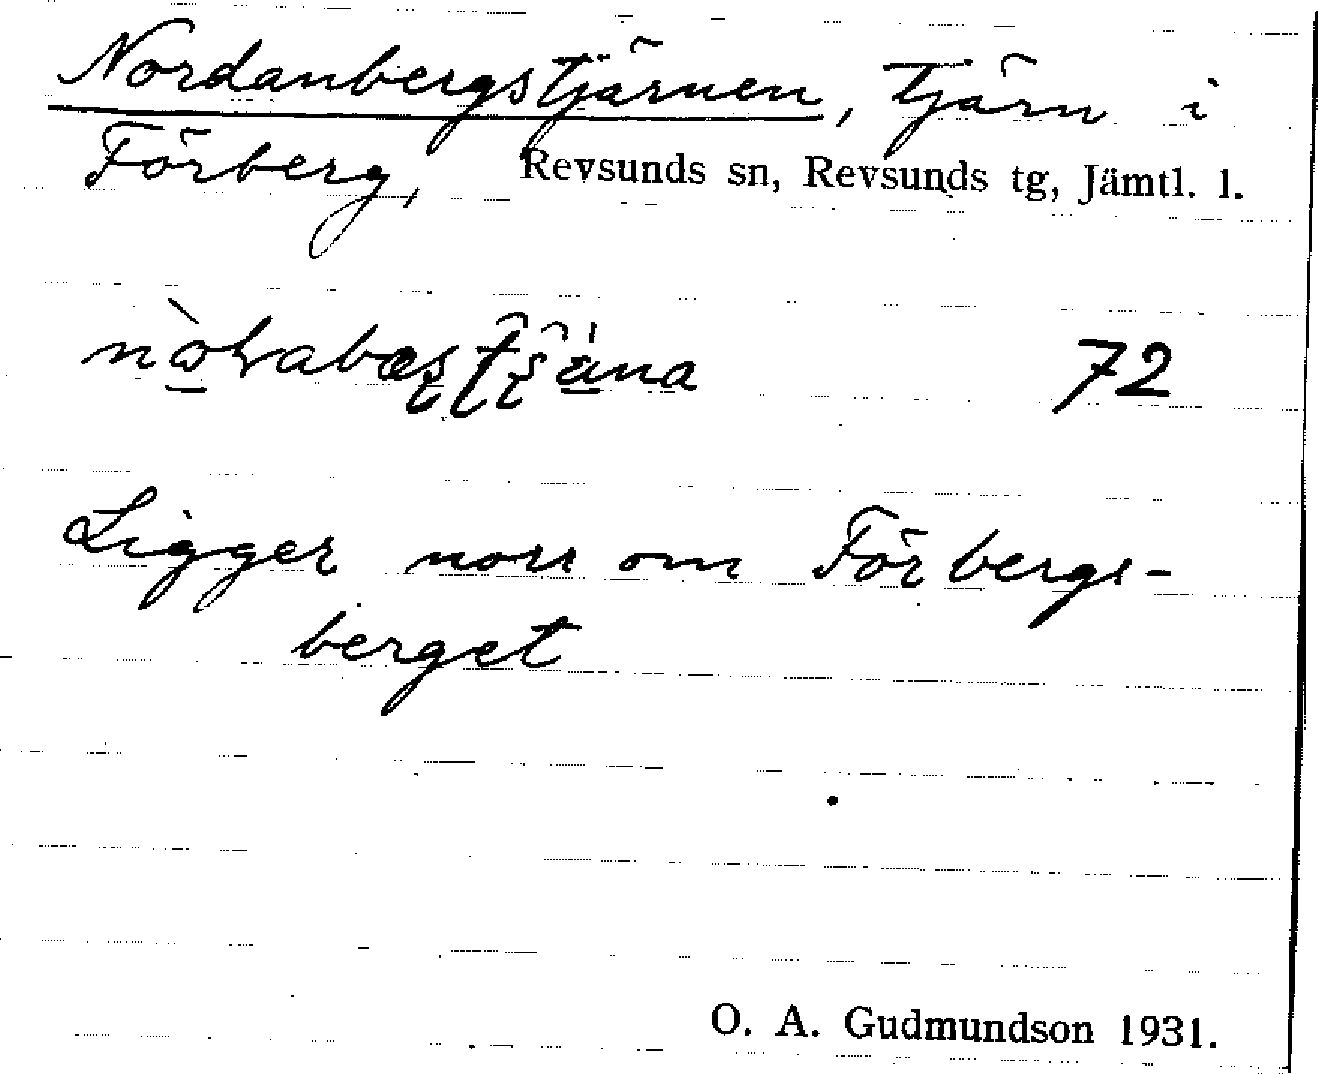 Nordanbergstjärnen, tjärn i
Förberg, Revsunds sn, Revsunds tg, Jämtl. l.
72
Ligger norr om Förbergs-
berget
O. A. Gudmundson 1931.